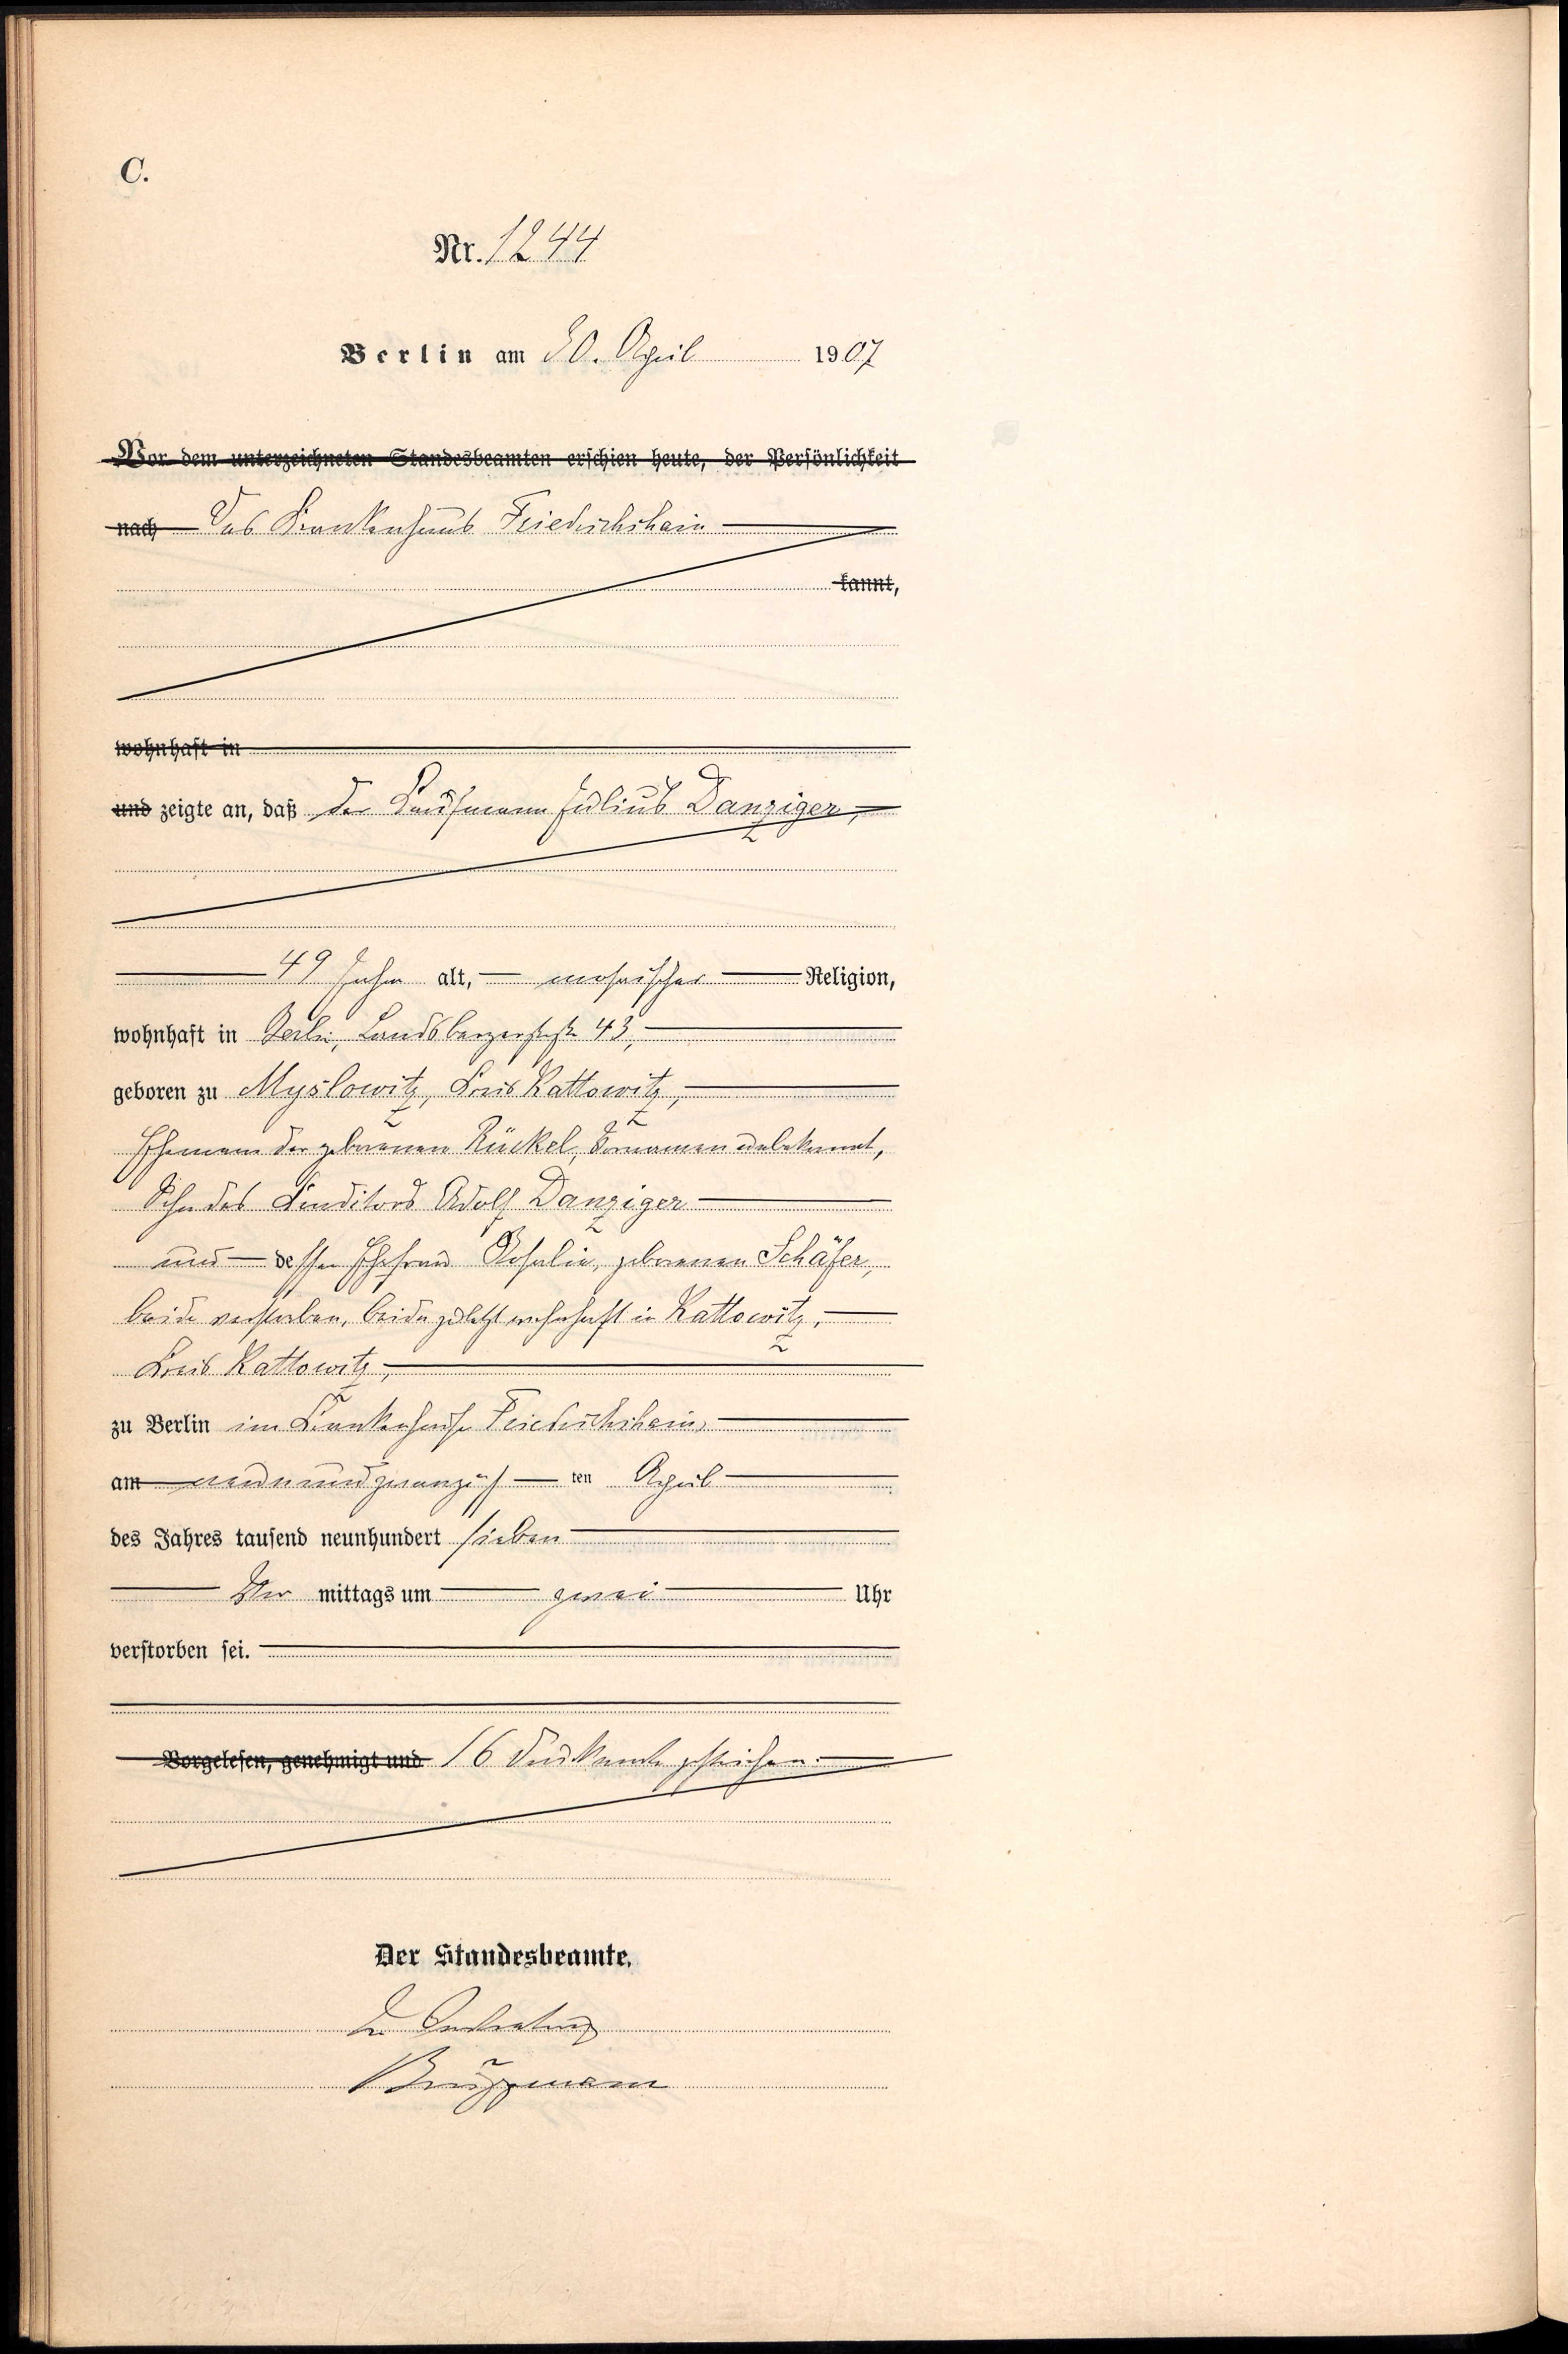 C.
Nr. 1244
Berlin am 30. April 1907
Vor dem unterzeichneten Standesbeamten erschien heute, der Persönlichkeit
nach Das Krankenhaus Friedrichshain
kannt,
wohnhaft in
und zeigte an, daß der Kaufmann Julius Danziger,
49 Jahre alt, mosaischer Religion,
wohnhaft in Berlin, Landsbergerstraße 43,
geboren zu Myslowitz, Kreis Kattowitz,
Ehemann der geborenen Rückel, Vornamen unbekannt,
Sohn des Konditors Adolf Danziger
und dessen Ehefrau Rosalie, geborenen Schäfer,
beide verstorben, beide zuletzt wohnhaft in Kattowitz,
Kreis Kattowitz,
zu Berlin im Krankenhause Friedrichshain,
am neunundzwanzigsten April
des Jahres tausend neunhundert sieben
Vor mittags um zwei Uhr
verstorben sei.
Vorgelesen, genehmigt und 16 Druckworte gestrichen.
Der Standesbeamte.
In Vertretung
Brüggmann